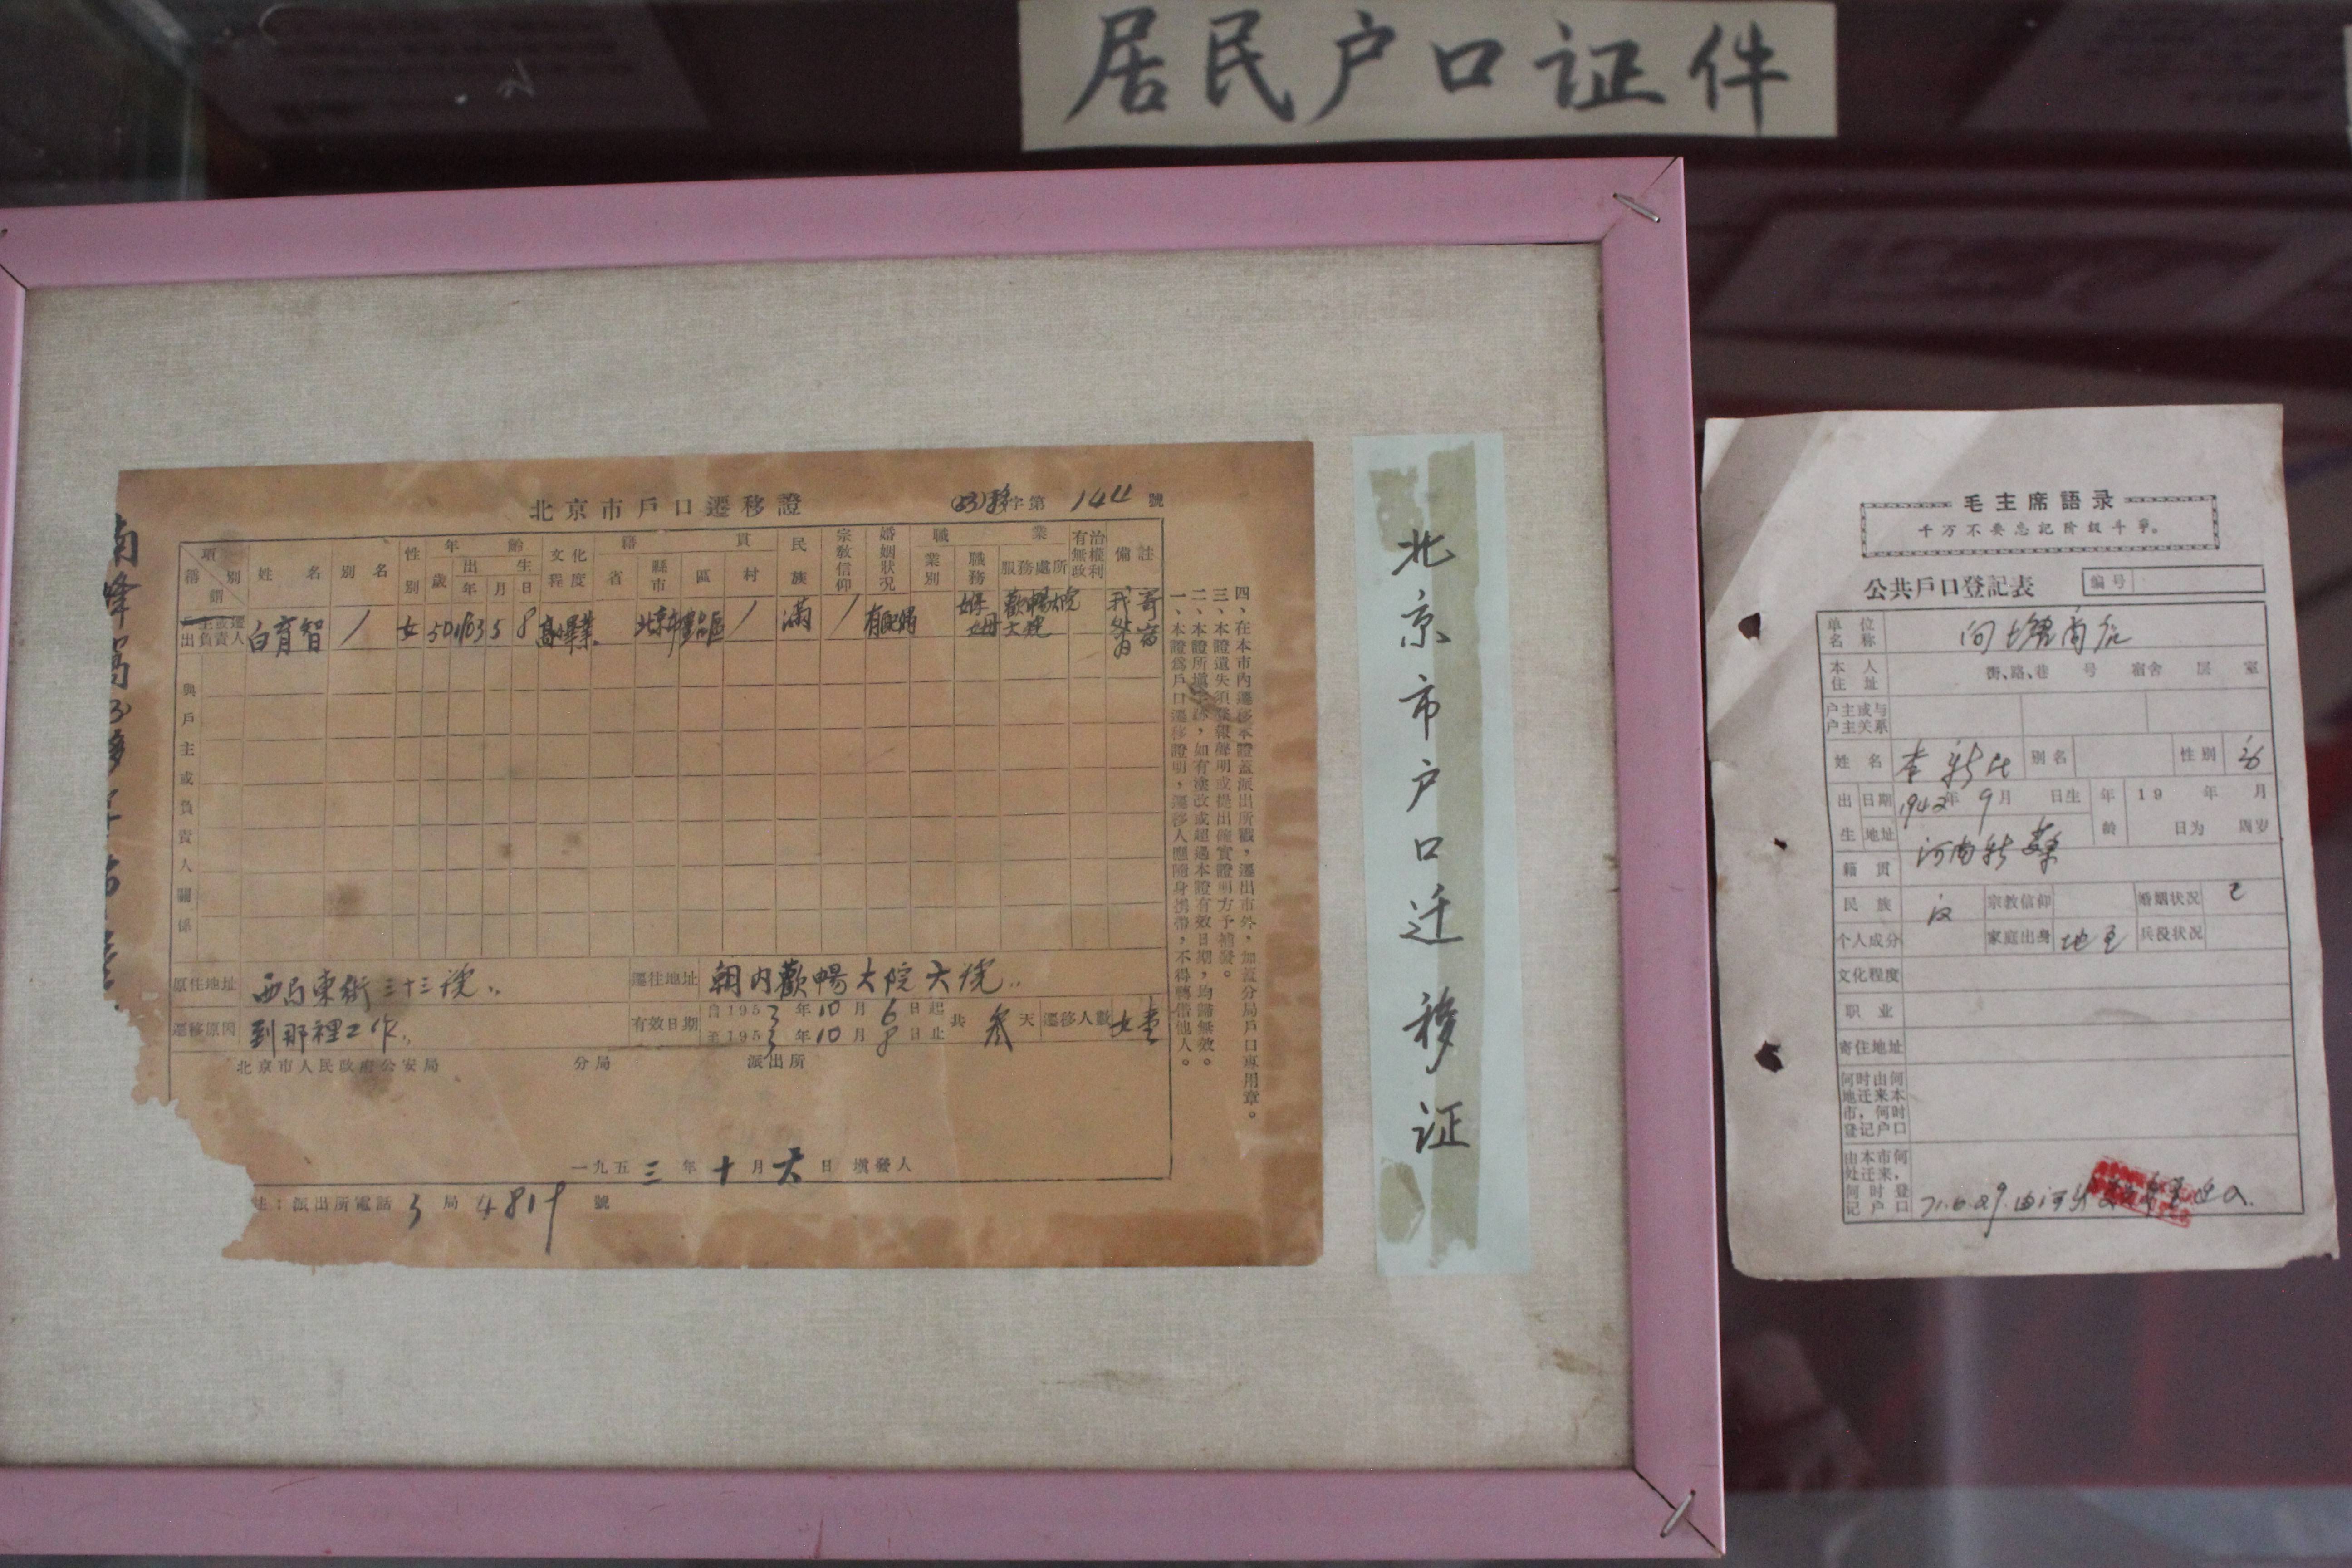 居民户口证件
北京市戶口遷移證
字第 144 號
項別
姓名 別名 性別 年齡 歲 出生 年 月 日 文化程度 籍貫 省 縣市 區 村 民族 宗教信仰 婚姻狀況 職業 業別 職務 服務處所 有無政治權利 備註
白育智 / 女 50 1903 5 8 / 滿 / 有配偶 歡暢大院
與戶主或負責人關係
原住地址 三十三號
遷往地址 朝内歡暢大院六號
遷移原因 到那裡工作
有效日期 自1953年10月6日起
至1953年10月8日止
共 叁 天 遷移人數 女壹
北京市人民政府公安局 分局 派出所
一九五三年十月六日 填發人
註：派出所電話 局 4819 號
一、本證爲戶口遷移證明，遷移人應隨身携帶，不得轉借他人。
二、本證所填，如有塗改或超過本證有效日期，均歸無效。
三、本證遺失須登報聲明或提出確實證明方予補發。
四、在本市内遷移本證蓋派出所戳，遷出市外，加蓋分局戶口專用章。
北京市户口迁移证
毛主席語录
千万不要忘記阶級斗爭。
公共戶口登記表
編号
単位名称
本人住址 街、路、巷 号 宿舍 层 室
户主或与户主关系
姓名 李 别名 性别
出生 日期 1942年 9月 日生 年龄 19 年 月 日为 周岁
地址 河南新蔡
籍貫
民族 汉 宗教信仰 婚姻状况
个人成分 家庭出身 地主 兵役状况
文化程度
职业
寄住地址
何时由何地迁来本市，何时登记户口
由本市何处迁来，何时登记户口
71.6.29.由